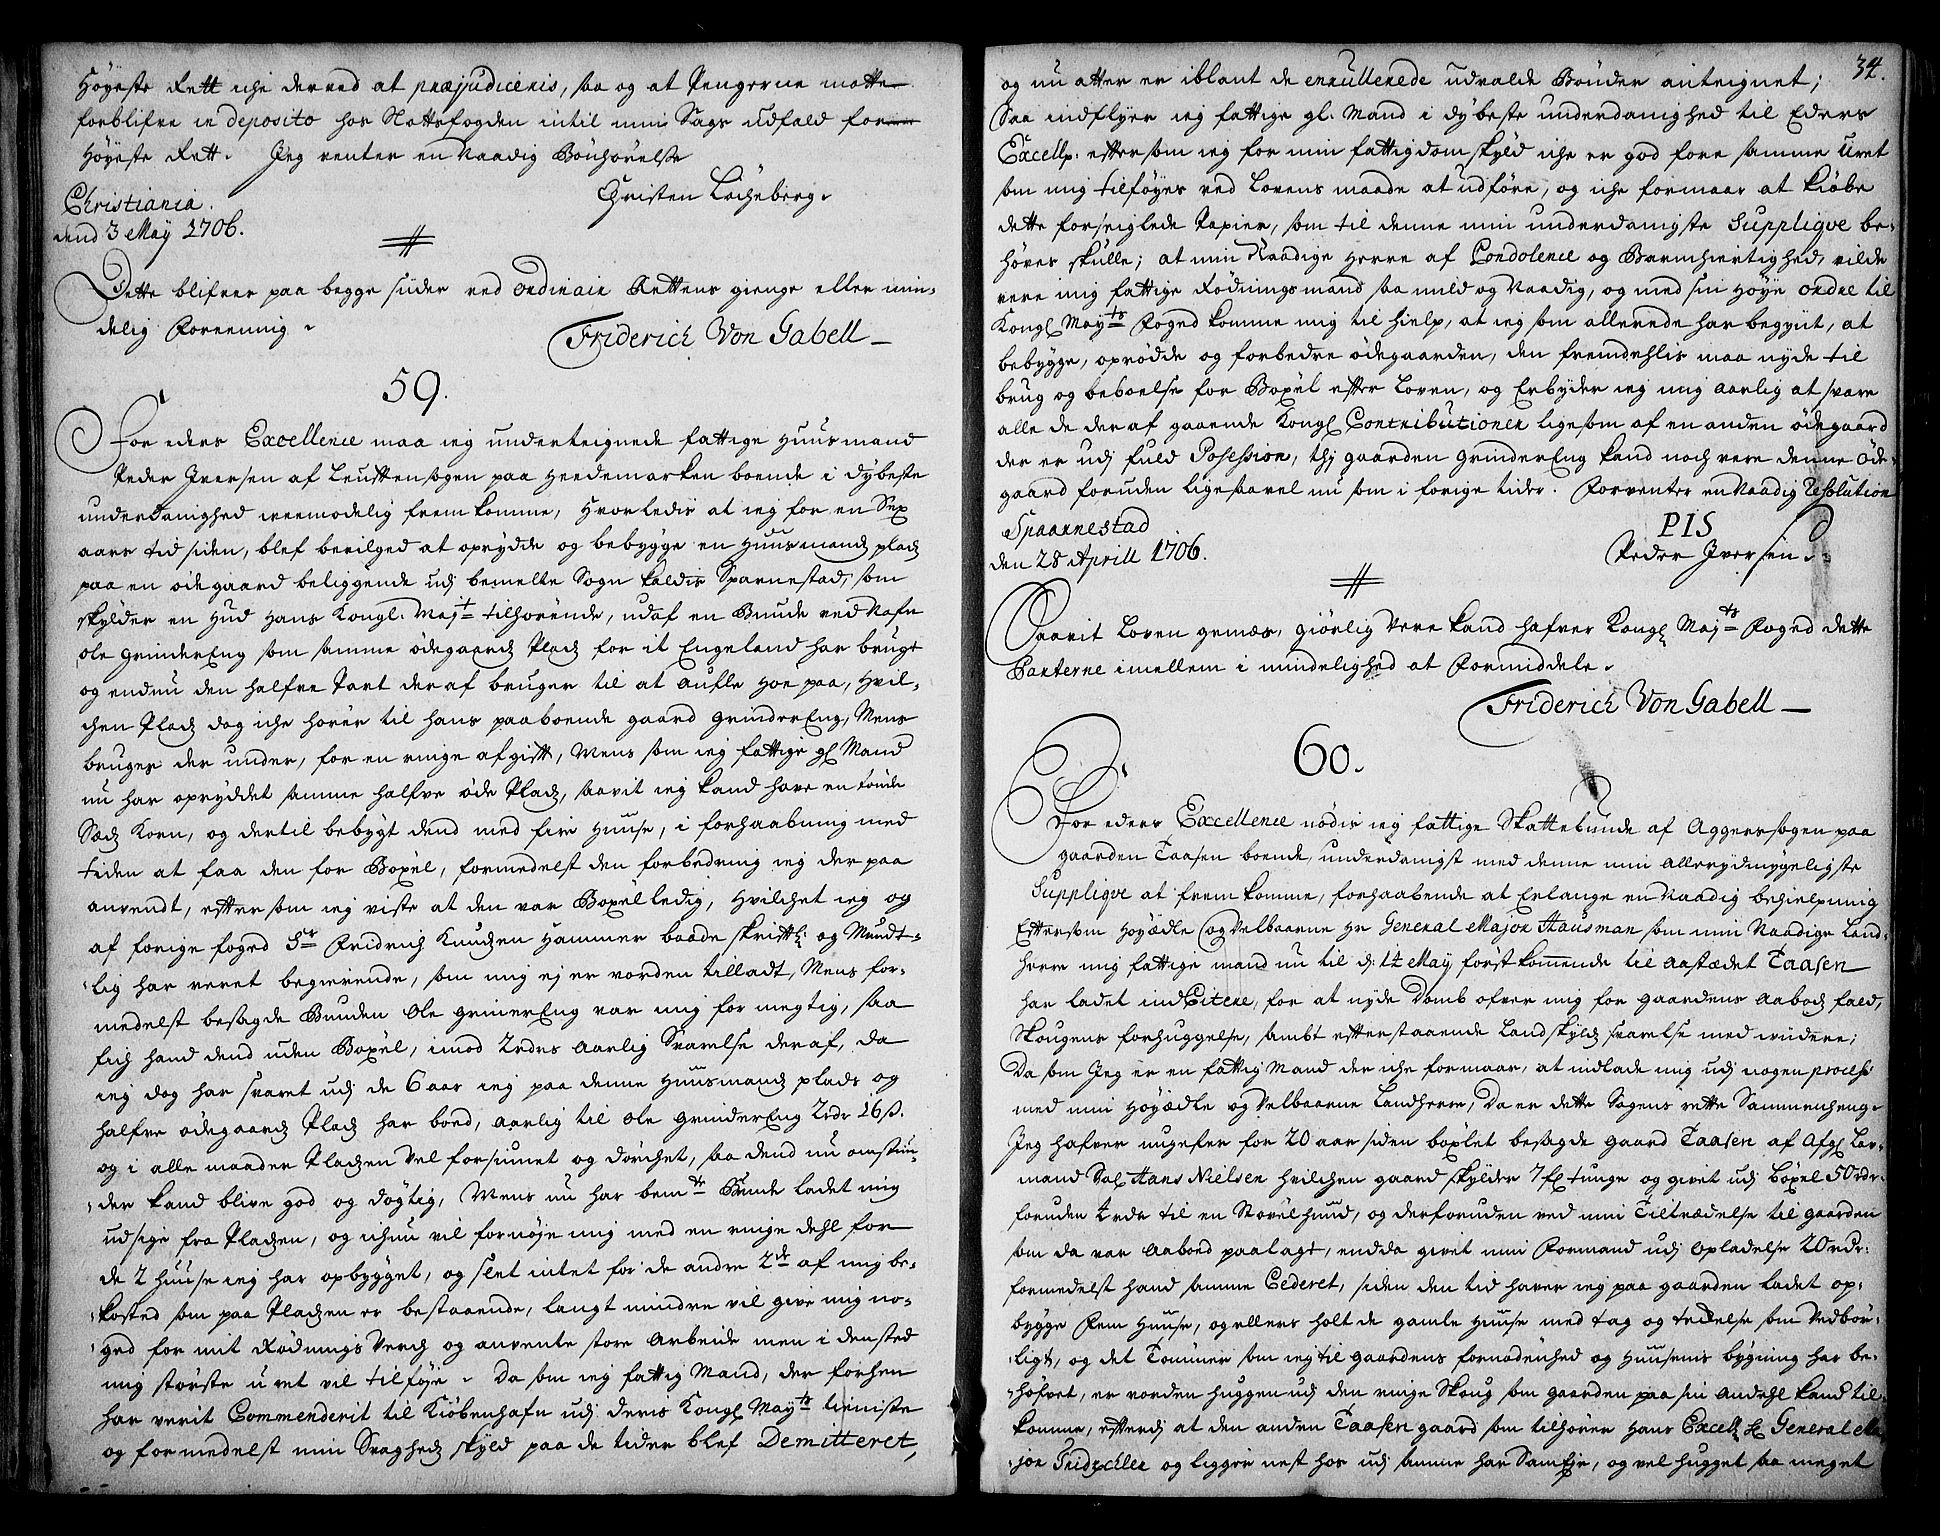 Høyeste Rett iche derved at præjudiceris, saa og at Pengerne motte
forblifve in deposito hos Slottsfogden intil min Sags udfald for
Høyeste Rett. Jeg venter en Naadig Bønhørelse
Christen Locheberg.
Christiania.
dend 3 May 1706.
Dette blifver paa begge sider ved Ordinair Rettens gienge eller min-
delig Foreening.
Friderich Von Gabell
59.
For eders Excellence maa ieg underteignede fattige Huusmand
Peder Iversen af Leuttensogen paa Heedemarken boende i dybeste
underdanighed veemodelig fremkomme, Hvorledis at ieg for en Sex
aars tid siden, blef bevilged at oprydde og bebygge en Huusmands plads
paa en ødegaard beliggende udj bemelte Sogn kaldis Sparnestad, som
skylder en Hud Hans Kongl. Mayt tilhørende, udaf en Bunde ved Nafn
Ole GrinderEng som samme ødegaards Plads for it Engeland har brugt
og endnu den halfve Part deraf bruger til at aufle Hoe paa, Hvil-
chen Plads dog iche hører til hans paaboende gaard GrinderEng, Mens
bruges der under, for en ringe afgift, Mens som ieg fattige gl Mand
nu har opryddet samme halfve øde Plads, saavit ieg kand have en tønde
Sæds Korn, og dertil bebygt dend med fire Huuse, i forhaabning med
tiden at faa den for Boxel, formedelst den forbedring ieg der paa
anvendt, eftersom ieg viste at den var Boxelledig, Hvilchet ieg og
af forige foged Sr Fridrich Knudsen Hammer baade skriftl: og Mundt-
lig har veret begierende, som mig ej er vorden tilladt, Mens for-
medelst besagde Bunden Ole GrinerEng var mig for megtig, saa
fich hand dend uden Boxel, imod 2 rdrs aarlig Svarelse deraf, da
ieg dog har svaret udj de 6 aar ieg paa denne Huusmands plads og
halfve ødegaards Plads har boed, aarlig til Ole GrinderEng 2 rdr 16 s.
og i alle maader Pladsen Vel forsiunet og dørchet, saa dend nu omstun-
der kand blive god og døgtig, Mens nu har bemte Bunde ladet mig
udsige fra Pladsen, og ichun vil fornøje mig med en ringe dehl for
de 2 huuse ieg har opbygget, og slet intet for de andre 2de af mig be-
kosted som paa Pladsen er bestaaende, langt mindre vil give mig no-
ged for mit Rødnings Verch og anvente store Arbeide men i densted
mig største uret vil tilføje. Da som ieg fattig Mand, der forhen
har verit Commenderit til Kiøbenhafn udj deris Kongl Mayts tieniste
og formedelst min Svagheds skyld paa de tider blef Demitteret,
34.
og nu atter er iblant de enrullerede udvalde Bønder anteignet;
Saa indflyer ieg fattige gl. Mand i dybeste underdanighed til Eders
Excell: eftersom ieg for min fattigdom skyld iche er god fore samme Uret
som mig tilføyes ved Lovens maade at udføre, og iche formaar at kiøbe
dette forseiglede Papier, som til denne min underdanigste Suppliqve be-
høves skulle; at min Naadige Herre af Condolence og Barmhiertighed, vilde
vere mig fattige Rødningsmand saa mild og Naadig, og med sin Høye Ordre til
Kongl Mayts Foged komme mig til hielp, at ieg som allerede har begynt, at
bebygge, oprødde og forbedre ødegaarden, den fremdehlis maa nyde til
brug og beboelse for Boxel efter Loven, og Erbyder ieg mig aarlig at svare
alle de deraf gaaende Kongl Contributioner ligesom af en anden ødegaard
der er udj fuld Posession, thj gaarden GrinderEng kand noch vere denne øde-
gaard foruden ligesaavel nu som i forige tider. Forventer en Naadig Resolution
Spaarnestad
den 28 Aprill 1706.
PIS
Peder Iversen.
Saavit Loven gemæs, giørlig Vere kand hafver Kongl Mayts Foged dette
Parterne imellem i mindelighed at Formiddele.
Friderich Von Gabell
60.
For eders Excellence nødis ieg fattige Skattebunde af Aggerssogen paa
gaarden Taasen boende, underdanigst med denne min allerydmygeligste
Suppliqve at fremkomme, forhaabende at Erlange en Naadig behielpning
Eftersom Høyædle og Velbaarne Hr General Major Hausman som min Naadige Land-
herre mig fattige mand nu til d: 12 May førstkommende til aastædet Taasen
har ladet indCitere, for at nyde Domb ofver mig for gaardens Aabods fald,
Skougens forhuggelse, sambt efterstaaende Landskylds svarelse med widere;
Da som Jeg er en fattig Mand der iche formaar, at indlade mig udj nogen process
med min Høyædle og Velbaarne Landherre, Da er dette Sagens rette Sammenheng.
Jeg hafver ungefer for 20 aar siden boxlet besagde gaard Taasen af Afgl Lav-
mand Sal Hans Nielsen hvilchen gaard skylder 7 fl tunge og givet udj Boxel 50 rdr
foruden 2 rdr til en Støvelhuud, og derforuden ved min Tiltrædelse til gaarden
som da var Aaboed paalagt, endda givet min Formand udj opladelse 20 rdr:
formedelst hand samme Cederet, siden den tid haver ieg paa gaarden ladet op-
bygge Fem Huuse, og ellers holt de gamle Huuse med tag og tredelse som Vedbør-
ligt, og det Tømmer som ieg til gaardens fornødenhed og Huusenis bygning har be-
høfvet, er vorden huggen udj den ringe Skoug som gaarden paa sin andehl kand til-
komme, efterdj at den anden Taasen gaard som tilhører Hans Excell Hl General Ma-
jor Tridzchler og ligger nest hos udj samme har SamEje, og vel hugget saa meget